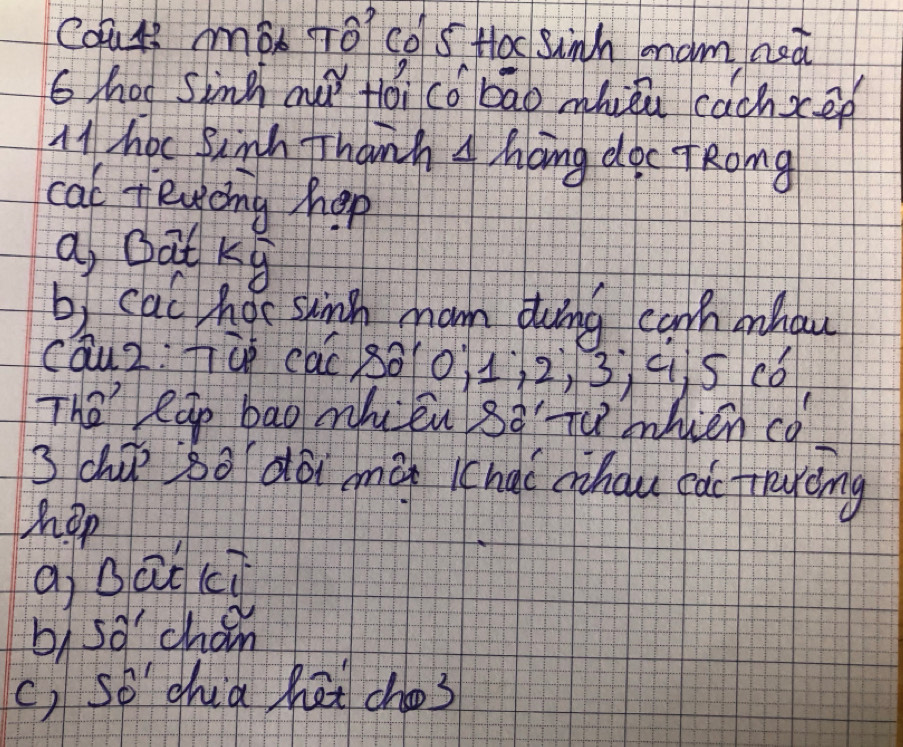 Câu 1: một Tổ có 5 Học sinh nam và
6 học sinh nữ Hỏi có bao nhiêu cách xếp
11 học sinh Thành 1 hàng dọc TRong
các tRường hợp
a, Bất kỳ
b, các học sinh nam đứng cạnh nhau
Câu 2: Từ các số 0; 1; 2; 3; 4; 5 có
Thể lập bao nhiêu số Tự nhiên có
3 chữ số đôi một Khác nhau các trường
hợp
a, Bất kì
b, số chẵn
c, số chia hết cho 3